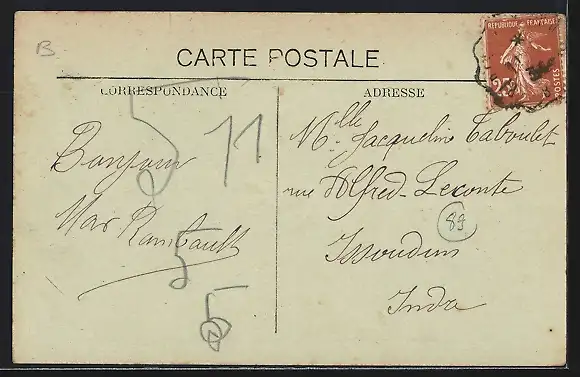 B
CARTE POSTALE
CORRESPONDANCE
ADRESSE
REPUBLIQUE FRANÇAISE
25
POSTES
Bonjour
Max Rambault
11
5
5
5
Mlle Jacqueline Taboulet
rue Alfred-Leconte
89
Issoudun
Indre